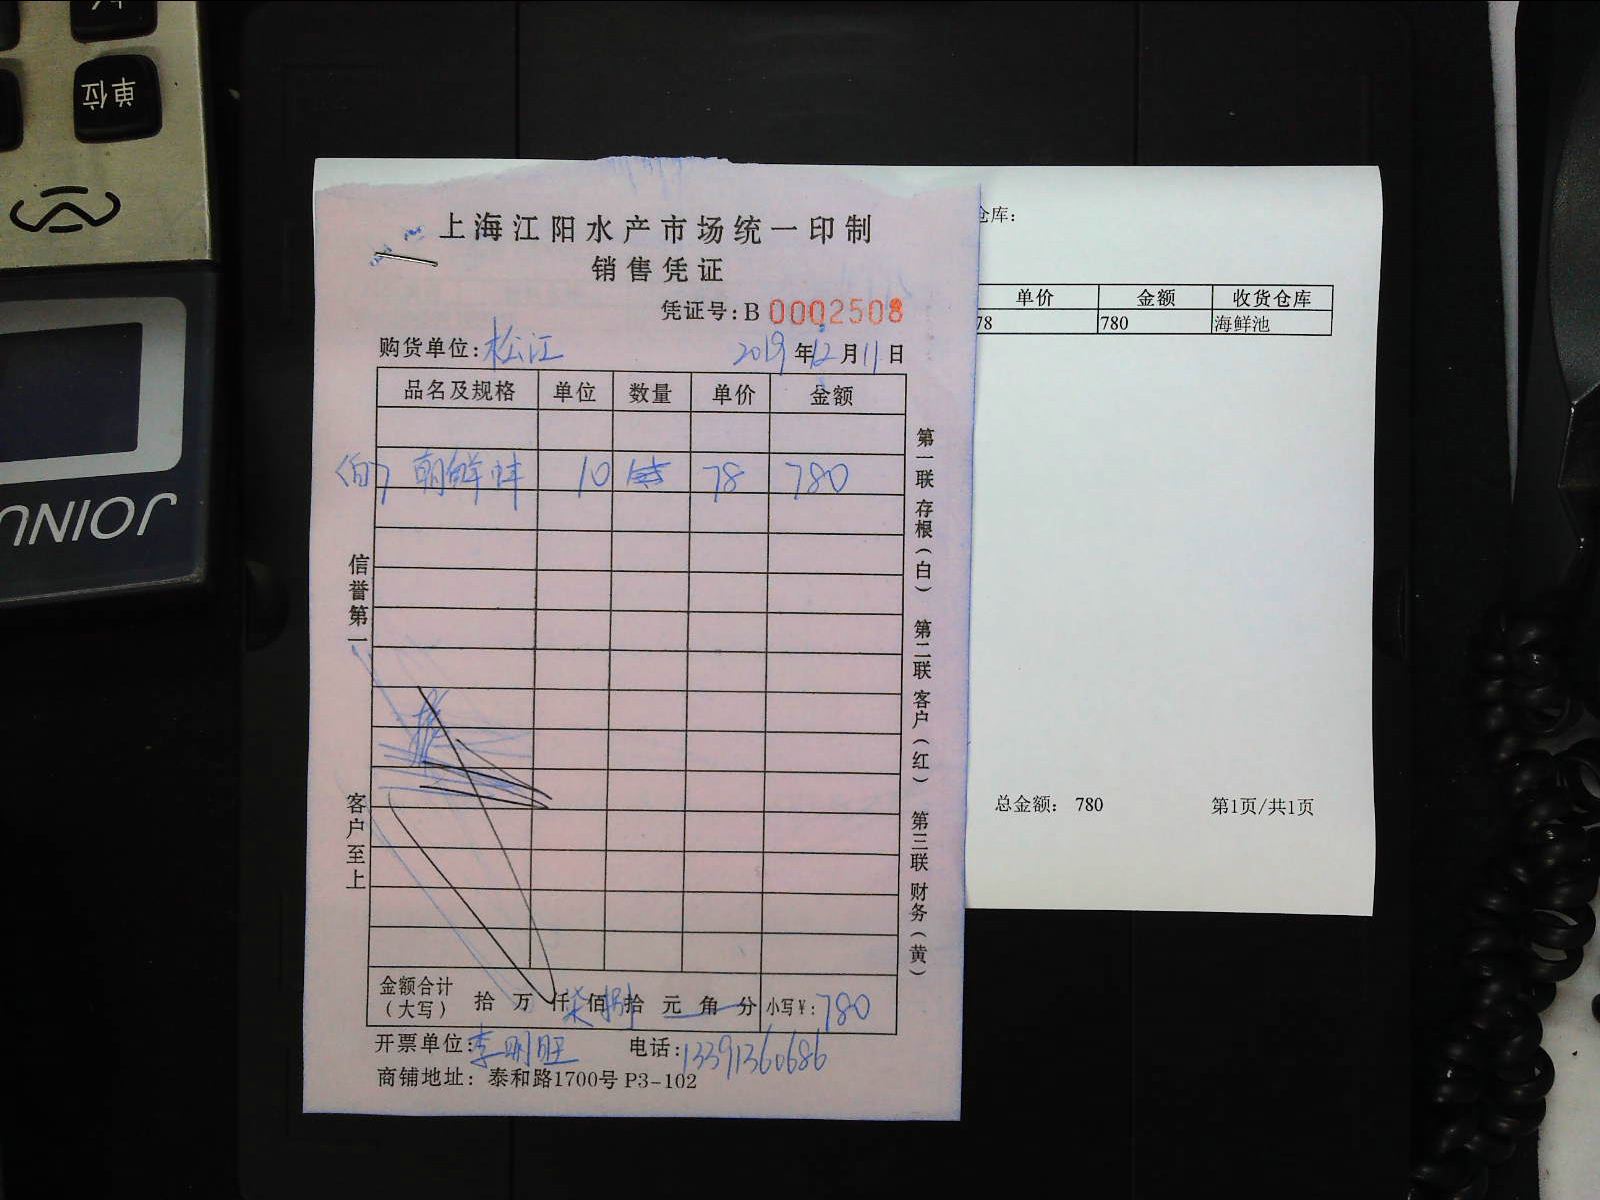 单位
JOINU
上海江阳水产市场统一印制
销售凭证
凭证号:B 0002508
购货单位:松江 2019年12月11日
品名及规格 单位 数量 单价 金额
朝鲜蚌 10 78 780
信誉第一
客户至上
第一联 存根(白) 第二联 客户(红) 第三联 财务(黄)
金额合计(大写) 拾 万 仟 柒佰 捌拾 元 角 分 小写¥:780
开票单位:李明旺 电话:13391360686
商铺地址: 泰和路1700号 P3-102
仓库:
单价 金额 收货仓库
78 780 海鲜池
总金额: 780 第1页/共1页